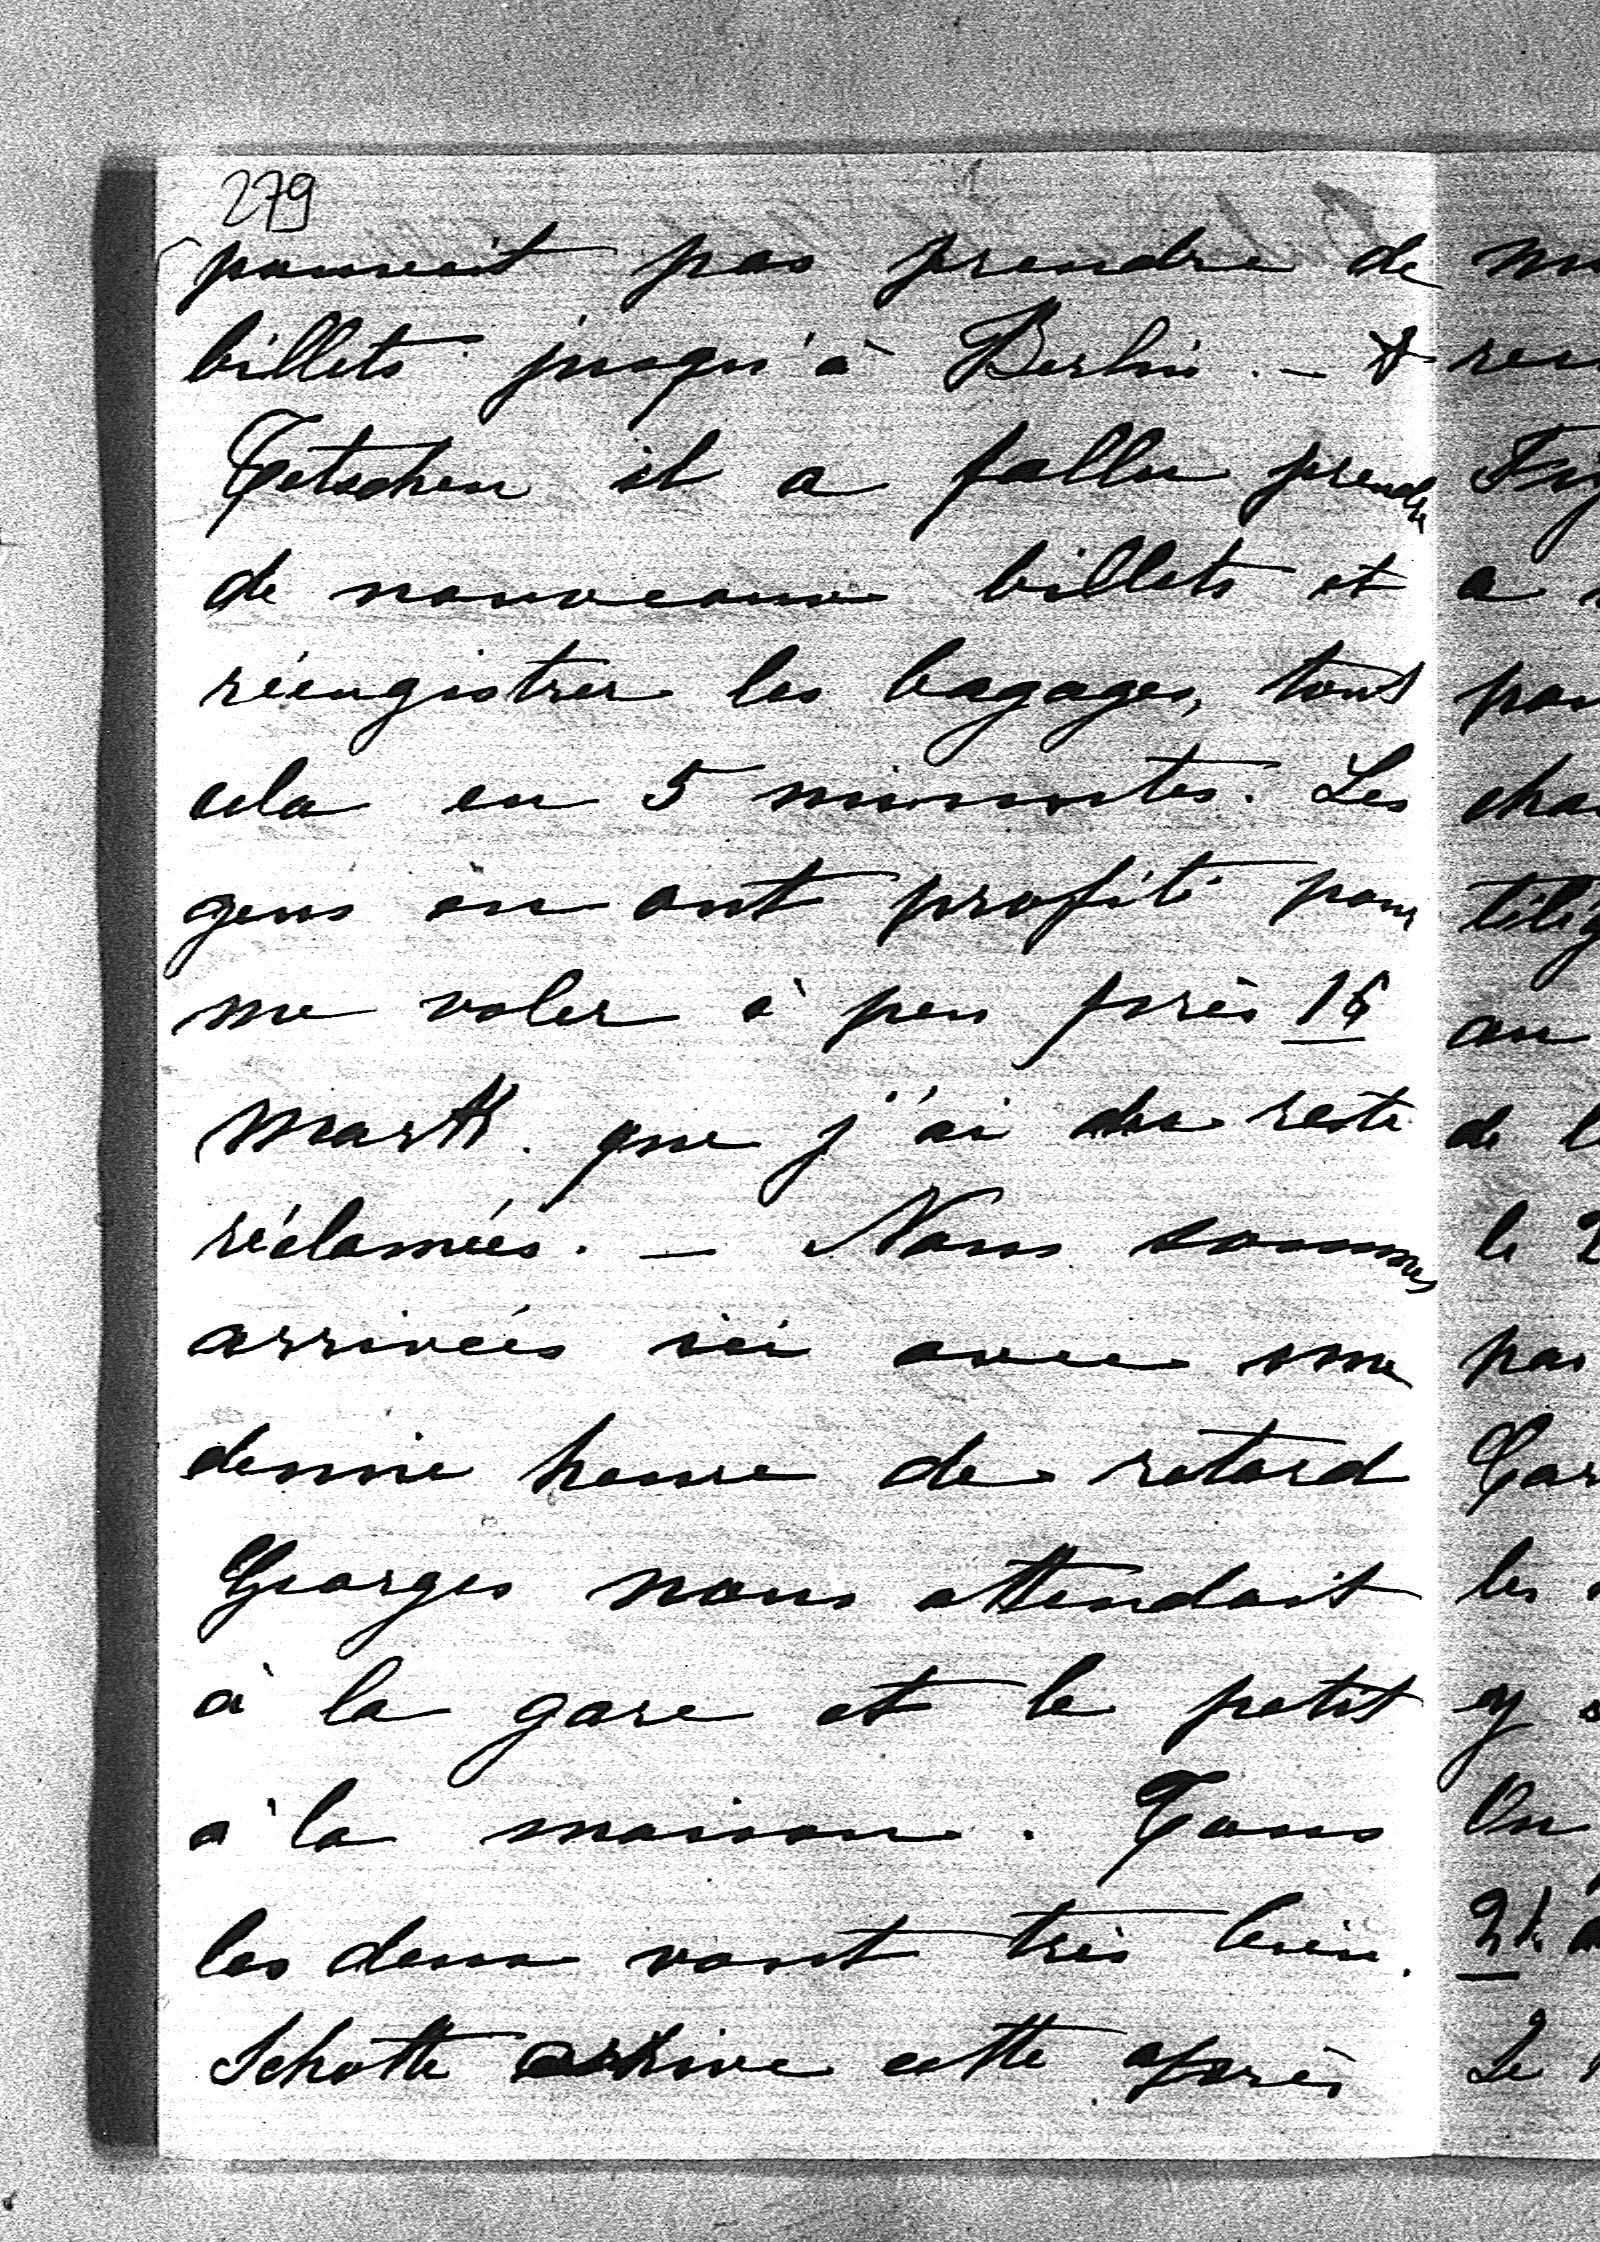 279
pouvait pas prendre de
billets jusqu'à Berlin. - A
Tetschen il a fallu prendre
de nouveaux billets et
réengistrer les bagages, tout
cela en 5 minutes. Les
gens en ont profité pour
me voler à peu près
Mark. que j'ai du reste
réclamées. - Nous sommes
arrivées ici avec une
demie heure de retard
Georges nous attendait
à la gare et le petit
à la maison. Tous
les deux vont très bien.
Schotte arrive cette après